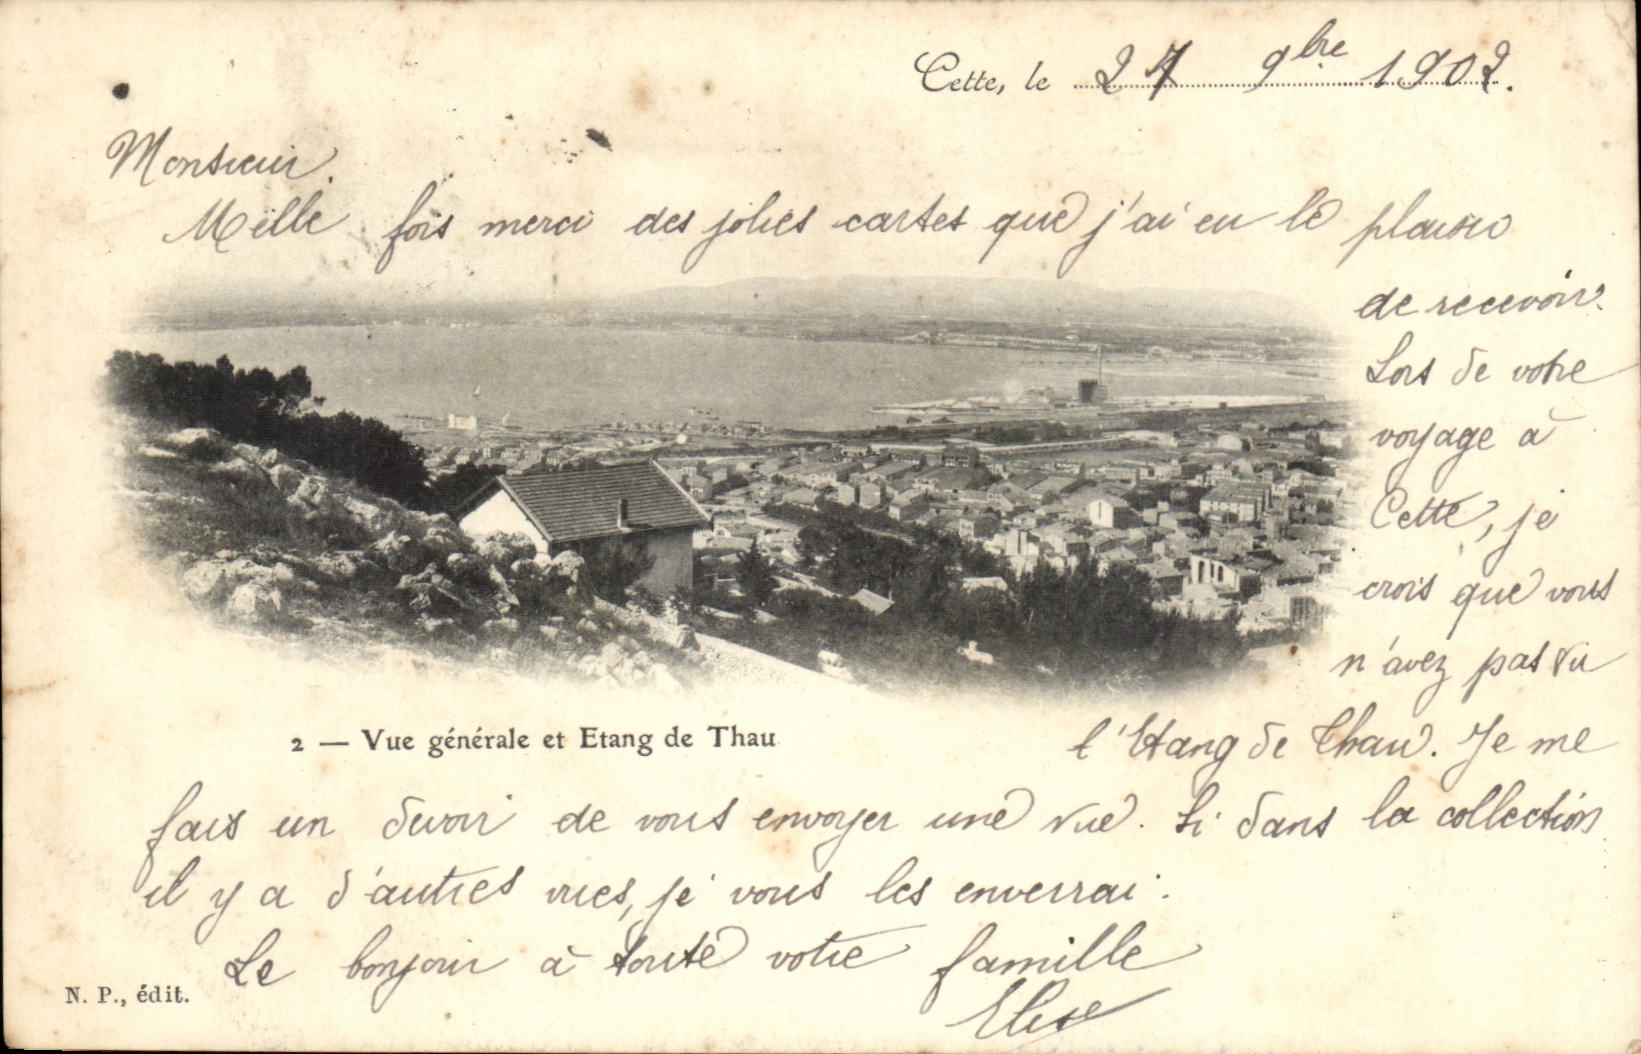 Cette, le 27 9bre 1902.
Monsieur.
Mille fois merci des jolies cartes que j'ai eu le plaisir
de recevoir.
Lors de votre
voyage à
Cette, je
crois que vous
n'avez pas vu
l'Etang de Thau. Je me
2 — Vue générale et Etang de Thau
fais un devoir de vous envoyer une vue. Si dans la collection
il y a d'autres vues, je vous les enverrai.
Le bonjour à toute votre famille
Elise
N. P., édit.